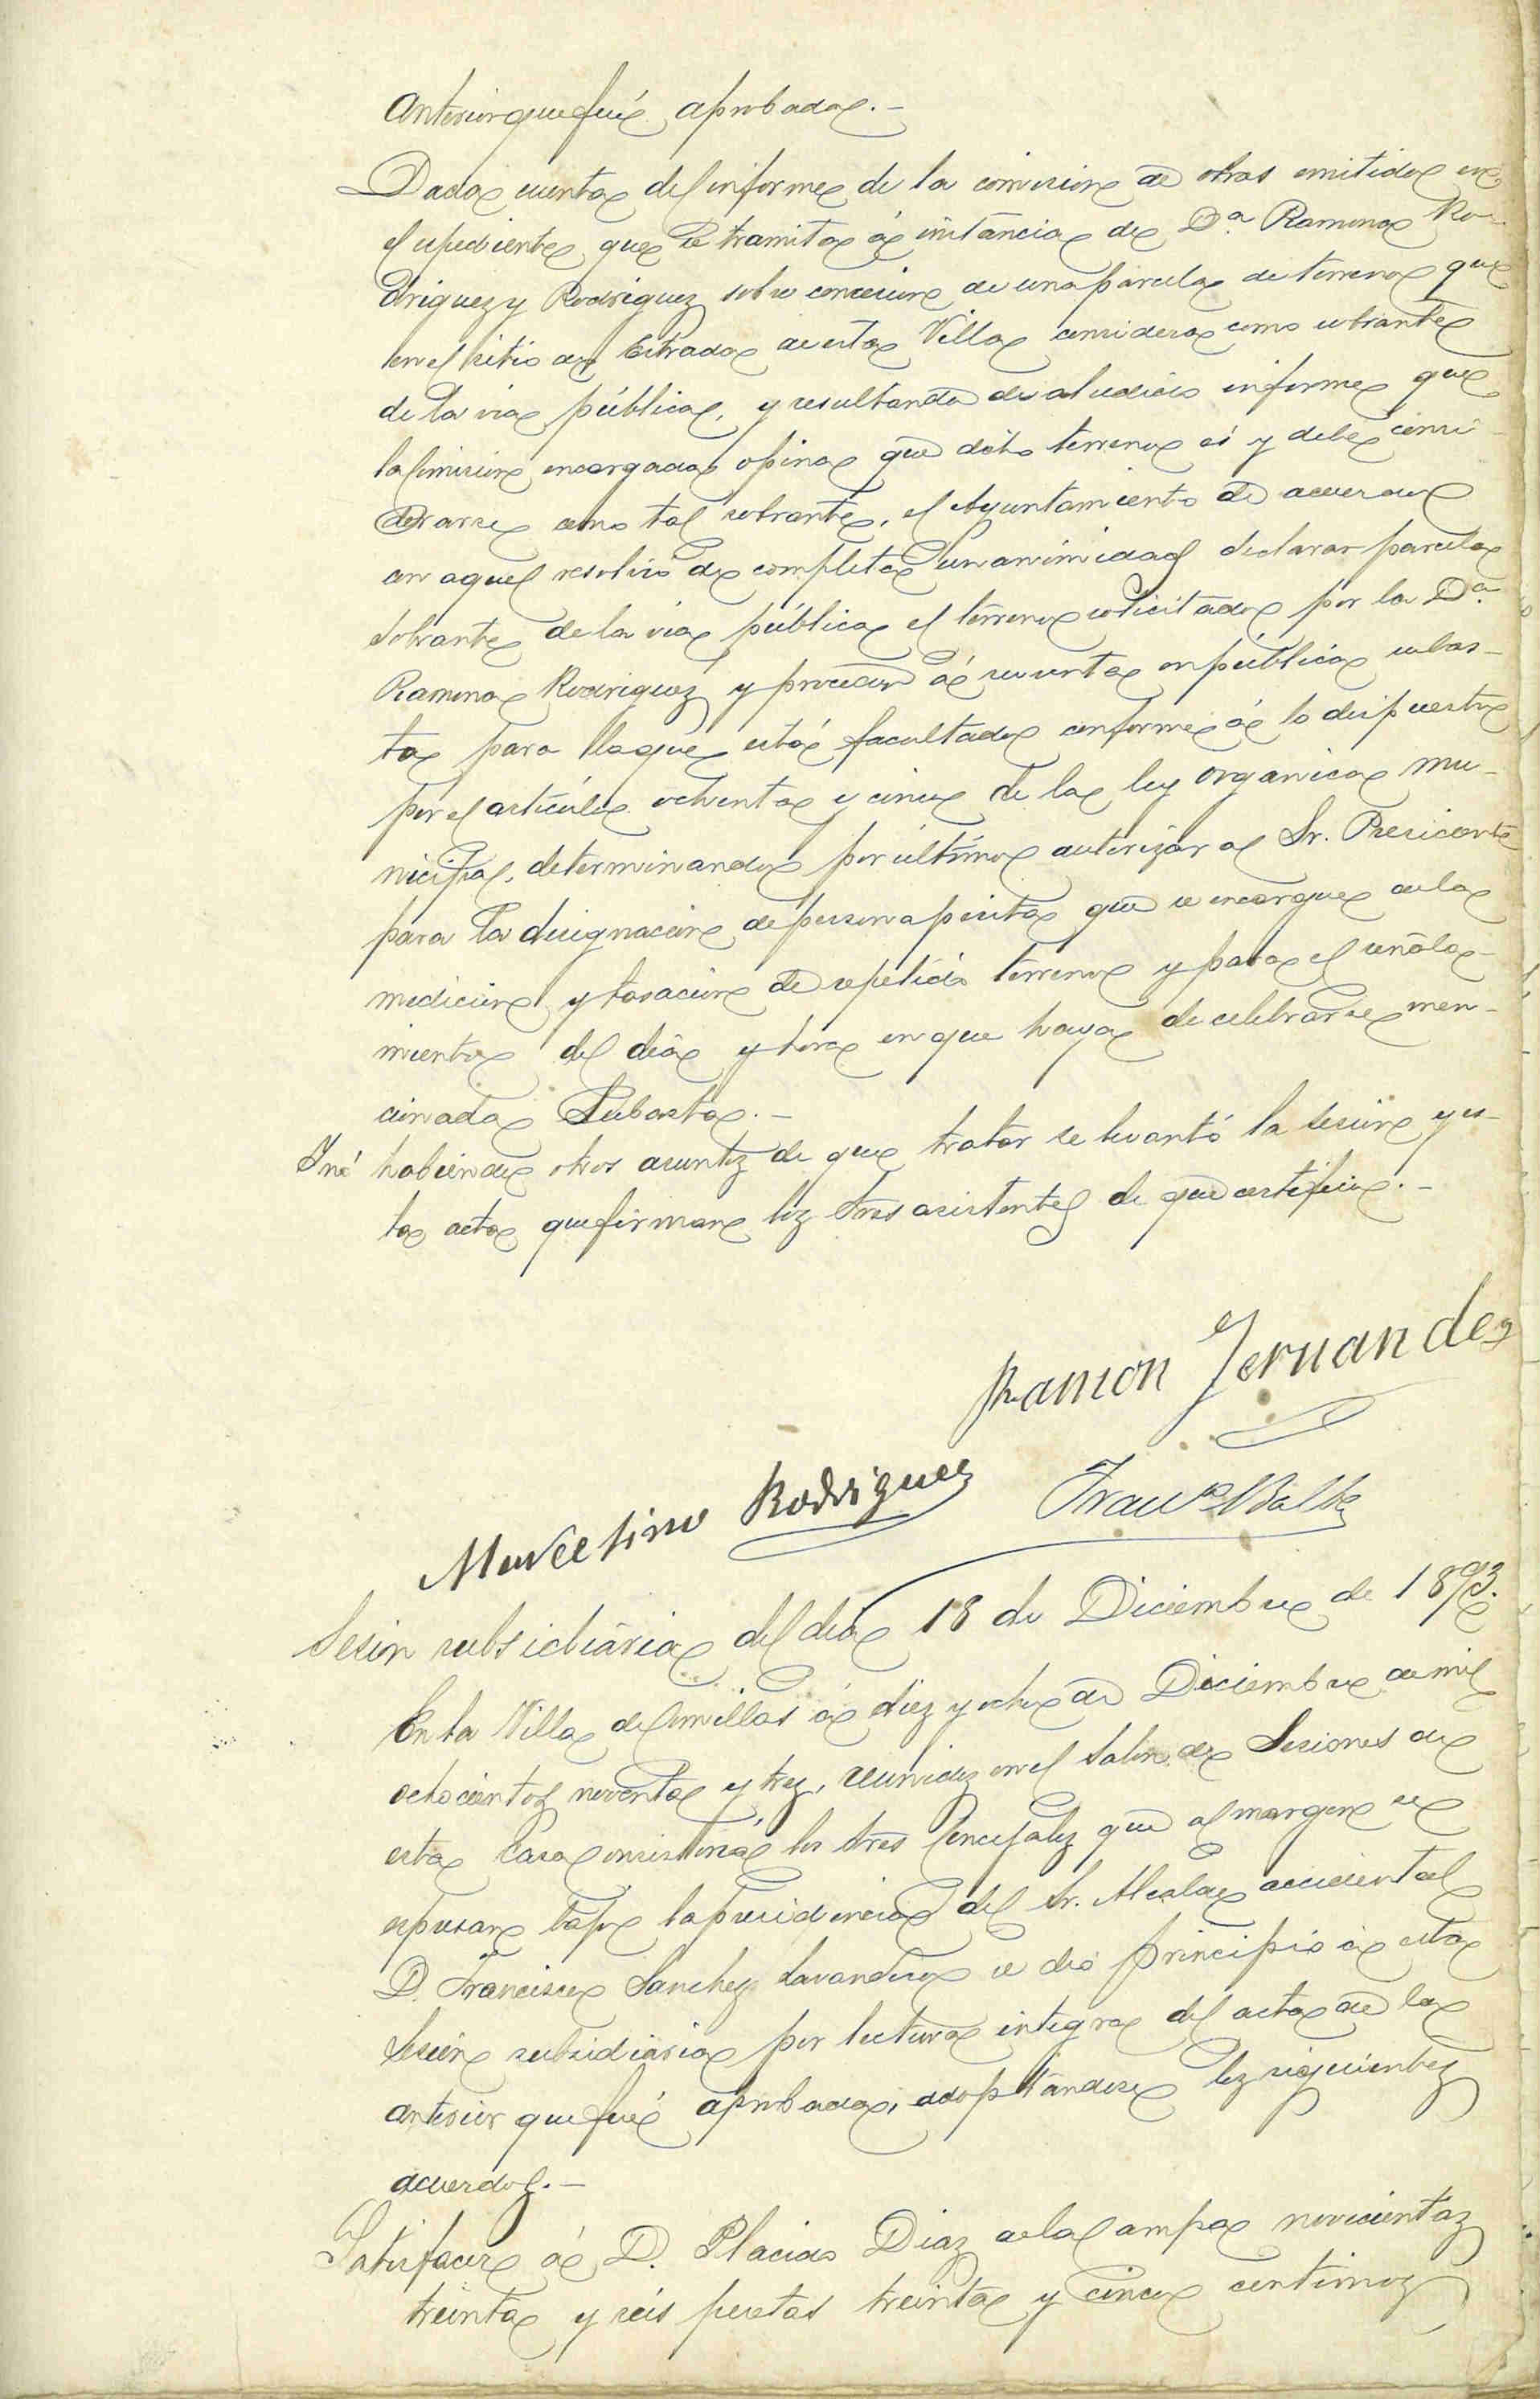 anterior que fué aprobada.—
Dada cuenta del informe de la comision de obras emitido en
el espediente que se tramita á instancia de D.ª Ramona Ro-
driguez y Rodriguez sobre concesion de una parcela de terreno que
en el sitio de Estrada de esta Villa considera como sobrante
de la via pública, y resultando de aludido informe que
la Comision encargada opina que dicho terreno es y debe consi-
derarse como tal sobrante, el Ayuntamiento de acuerdo
con aquel resolvió de completa unanimidad declarar parcela
sobrante de la via pública el terreno solicitado por la D.ª
Ramona Rodriguez y proceder á su venta en pública subas-
ta para lo que está facultado conforme á lo dispuesto
por el artículo ochenta y cinco de la ley organica mu-
nicipal, determinando por último autorizar al Sr. Presidente
para la designacion de persona perita que se encargue de la
medicion y tasacion de repetido terreno y para el señala-
miento del dia y hora en que haya de celebrarse men-
cionada Subasta.—
Y no habiendo otros asuntos de que tratar se levantó la sesion y es-
ta acta que firman los Sres asistentes de que certifico.—
Ramon Fernandez
Marcelino Rodriguez
Fran.co
Sesion subsidiária del dia 18 de Diciembre de 1893.
En la Villa de Comillas á diez y ocho de Diciembre de mil
ochocientos noventa y tres, reunidos en el Salon de Sesiones de
esta Casa Consistorial los Sres Concejales que al margen se
espresan bajo la presidencia del Sr. Alcalde accidental
D. Francisco Sanchez Lavandero se dió principio á esta
Sesion subsidiaria por lectura integra del acta de la
anterior que fué aprobada, adoptandose los siguientes
acuerdos.—
Satisfacer á D. Placido Diaz de la Campa novecientas
treinta y seis pesetas treinta y cinco centimos